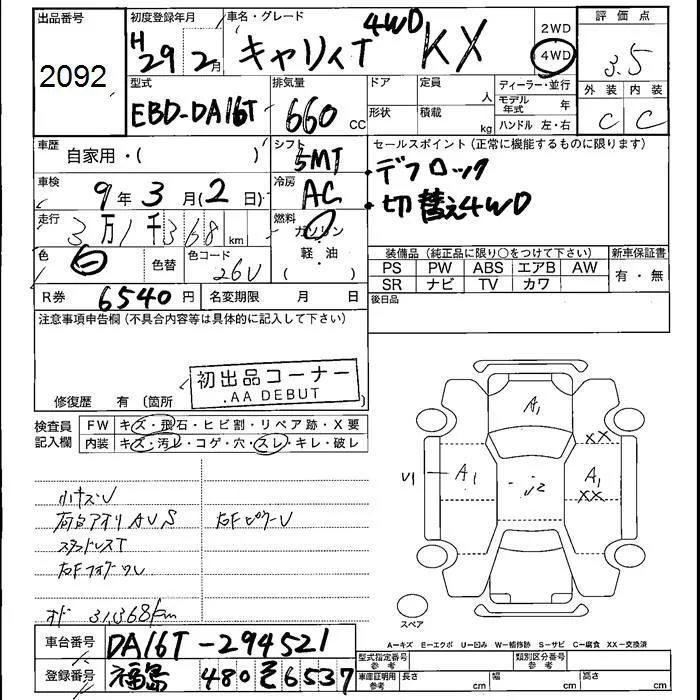 出品番号
2092
初度登録年月
H29 2月
車名・グレード
キャリイT 4WD KX
2WD
4WD
評価点
3.5
外装 内装
C C
型式
EBD-DA16T
排気量
660 CC
ドア
形状
定員
人
積載
kg
ディーラー・並行
モデル年式 年
ハンドル 左・右
車歴
自家用・( )
シフト
5MT
セールスポイント(正常に機能するものに限ります)
・デフロック
・切替え4WD
車検
9年3月(2日)
冷房
AC
走行
3万1千368km
燃料
ガソリン
軽・油
色
白
色替
色コード
26U
装備品(純正品に限り○をつけて下さい)
新車保証書
PS PW ABS エアB AW
SR ナビ TV カワ
有・無
R券
6540円
名変期限 月 日
後日品
注意事項申告欄(不具合内容等は具体的に記入して下さい)
初出品コーナー
.AA DEBUT
修復歴 有(箇所
検査員記入欄
FW キズ・飛石・ヒビ割・リペア跡・X要
内装 キズ・汚レ・コゲ・穴・スレ・キレ・破レ
小キズU
スタッドレスT
オド 31,368km
A1
XX
U1
A1
A1
XX
U2
スペア
A−キズ E−エクボ U−凹み W−補修跡 S−サビ C−腐食 XX−交換済
車台番号
DA16T-294521
登録番号
福島 480 そ 6537
型式指定番号 参考
類別区分番号 参考
車庫証明用 参考
長さ cm
幅 cm
高さ cm